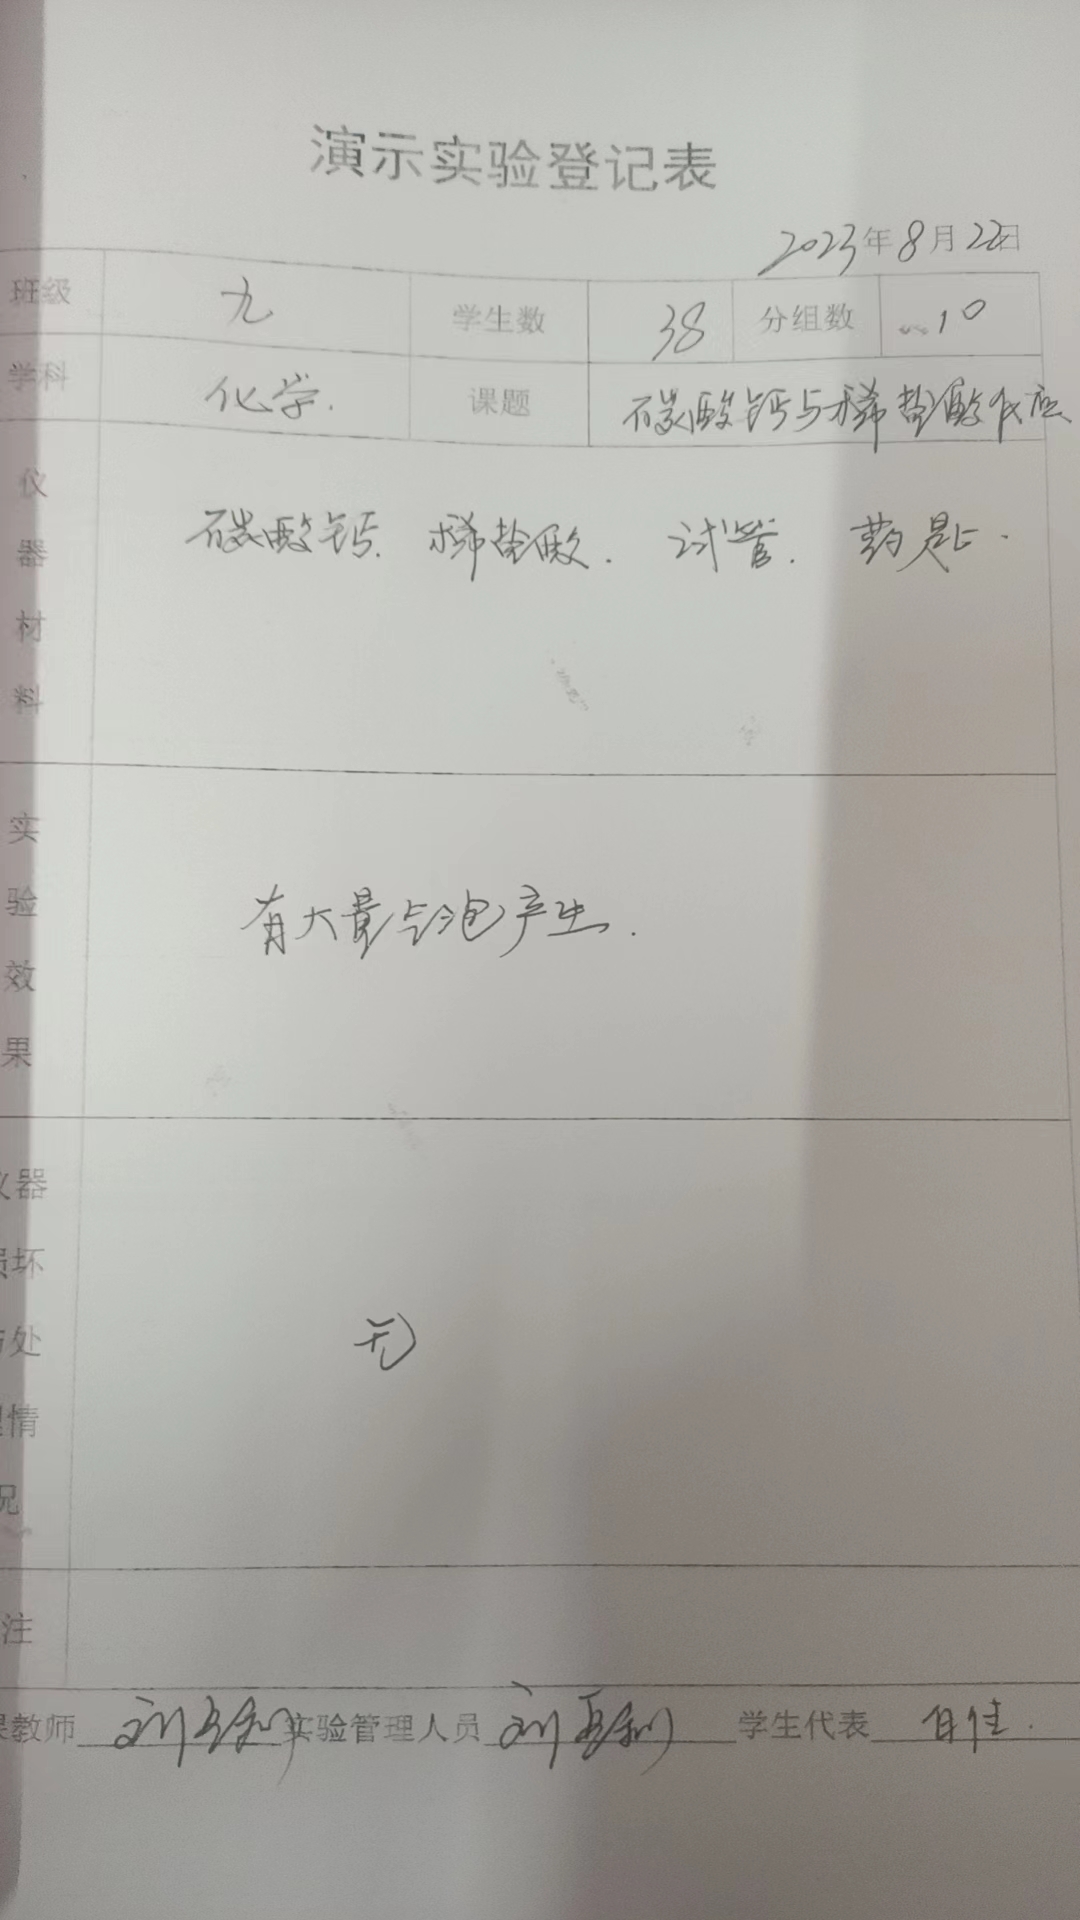 演示实验登记表
2023年8月22日
班级 九 学生数 38 分组数 10
学科 化学. 课题 碳酸钙与稀盐酸反应
仪器材料 碳酸钙. 稀盐酸. 试管. 药匙.
实验效果 有大量气泡产生.
仪器损坏与处理情况 无
注
课教师 刘 实验管理人员 刘 学生代表 白佳.